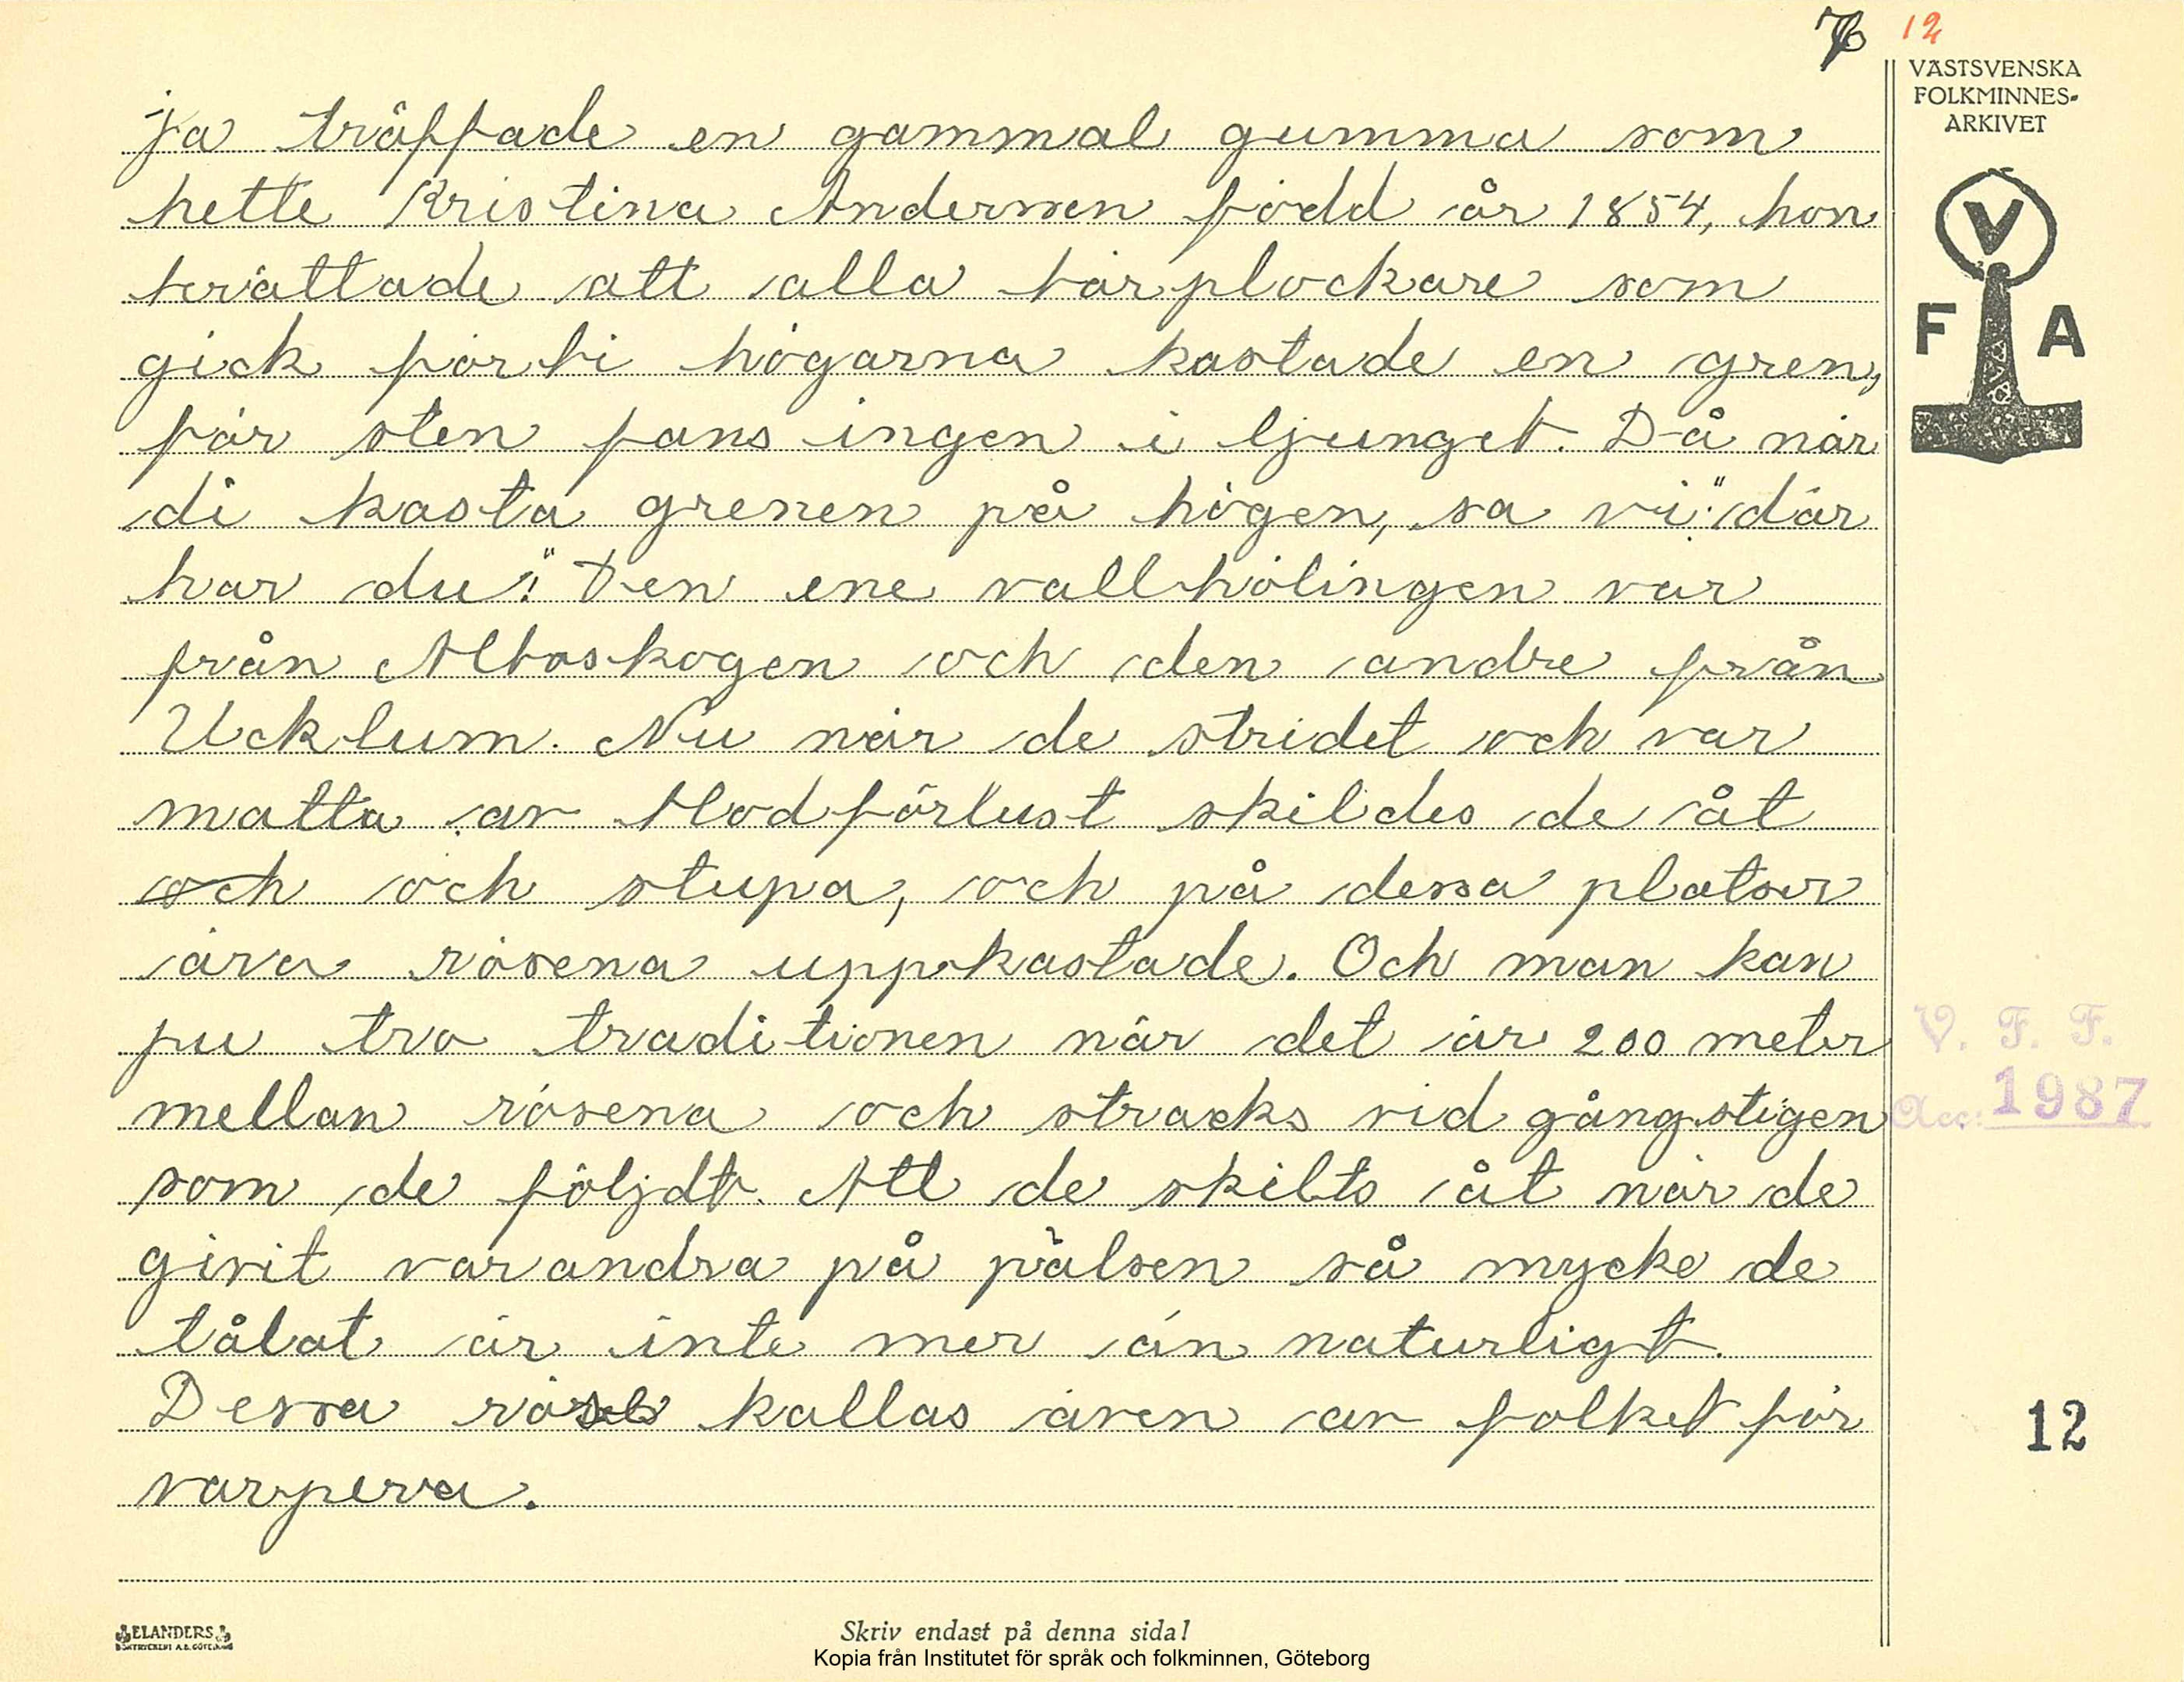 12
VÄSTSVENSKA
FOLKMINNES-
ARKIVET
V
F A
ja träffade en gammal gumma som
hette Kristina Andersen född år 1854, hon
berättade att alla bärplockare som
gick förbi högarna kastade en gren,
för sten fans ingen i ljunget. Då när
di kasta grenen på högen, sa vi: "där
har du!" Den ene vallhölingen var
från Alboskogen och den andre från
Ucklum. Nu när de stridet och var
matta av blodförlust skildes de åt
och och stupa, och på dessa platser
ära rösena uppkastade. Och man kan
ju tro traditionen när det är 200 meter
mellan rösena och stracks vid gångstigen
som de följdt. Att de skilts åt när de
givit varandra på pälsen så mycke de
tålat är inte mer än naturligt.
Dessa kallas även av folket för
varpera.
V. F. F.
Acc: 1987
12
ELANDERS
BOKTRYCKERI A.B. GÖTEBORG
Skriv endast på denna sida!
Kopia från Institutet för språk och folkminnen, Göteborg